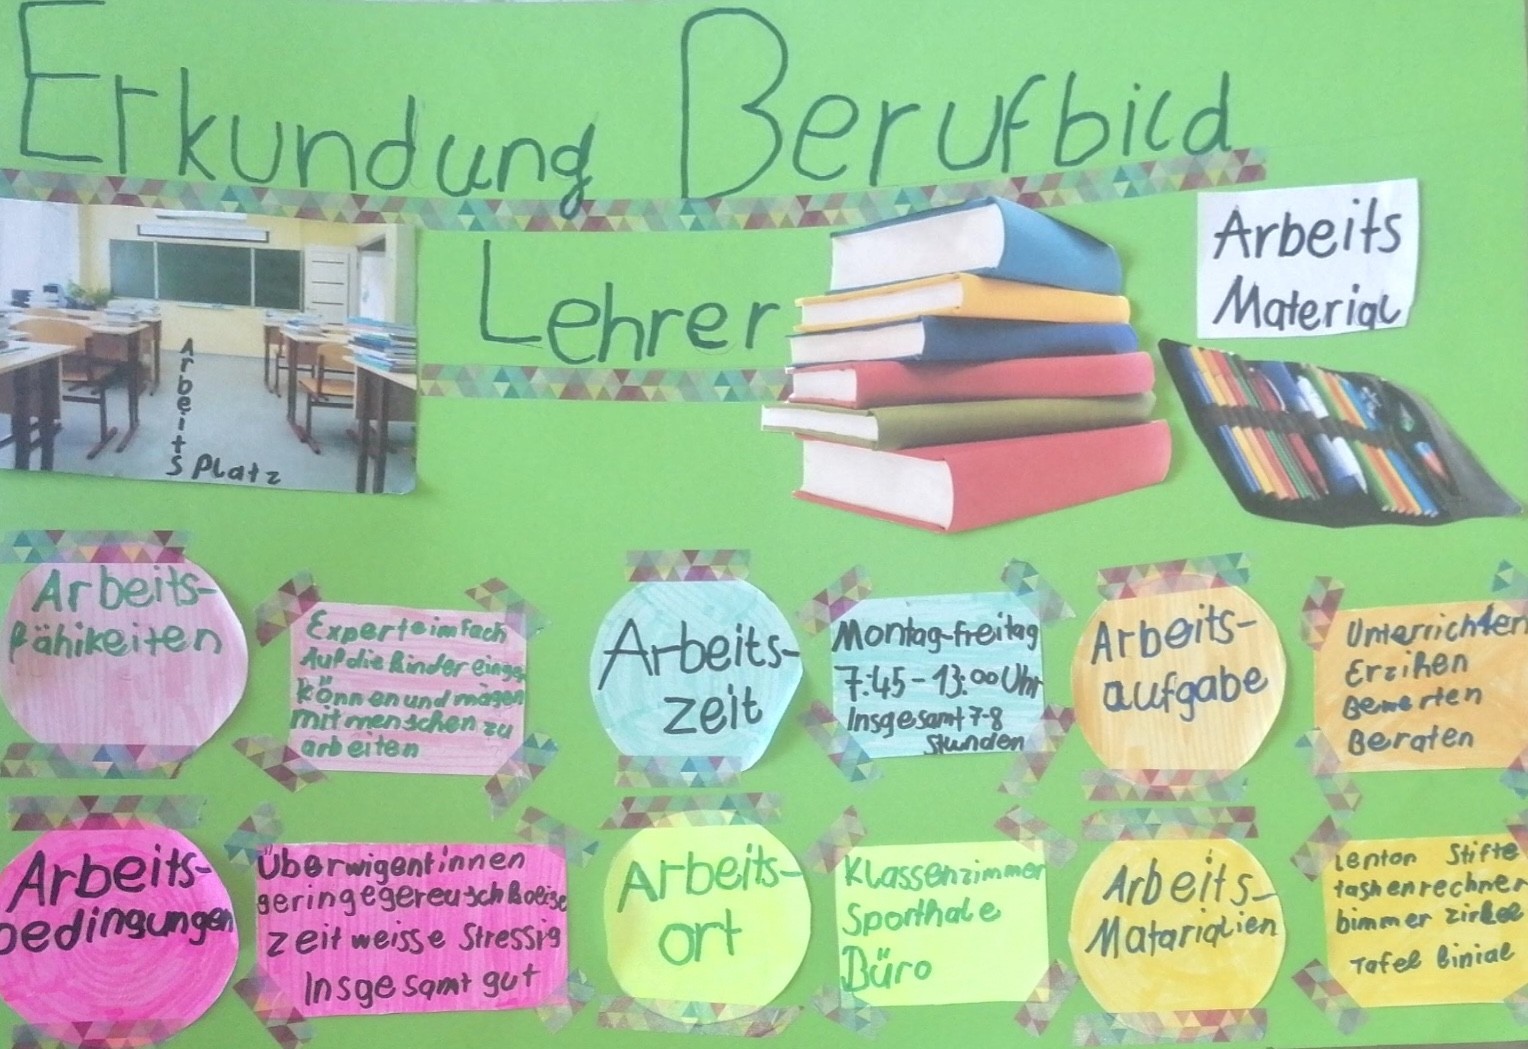 Erkundung Berufbild
Lehrer
Arbeits
Material
Arbeits
Platz
Arbeits-
fähikeiten
Experte im fach
Auf die Kinder einge
können und mögen
mit menschen zu
arbeiten
Arbeits-
zeit
Montag-freitag
7:45-13:00 Uhr
Insgesamt 7-8
Stunden
Arbeits-
aufgabe
Unterrichten
Erzihen
Bewerten
Beraten
Arbeits-
bedingungen
Überwigent innen
geringe
zeit weisse Stressig
Insgesamt gut
Arbeits-
ort
Klassenzimmer
Sporthale
Büro
Arbeits-
Matarialien
Stifte
tashenrechner
zirkel
Tafel linial